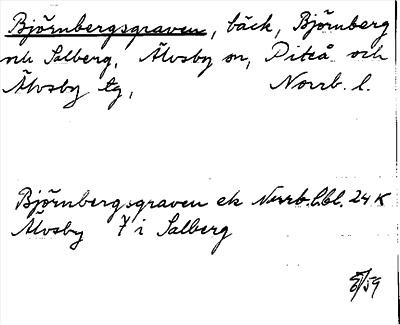 Björnbergsgraven, bäck, Björnberg
och Salberg, Älvsby sn, Piteå och
Älvsby tg, Norrb. l.
Björnbergsgraven ek Norrb. l. bl. 24 K
Älvsby 7 i Salberg
/59